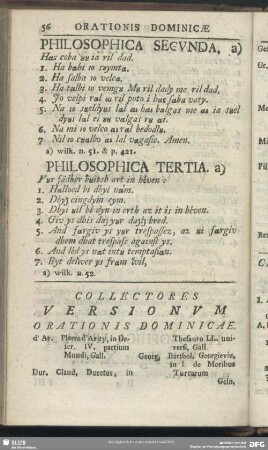 56 ORATIONIS DOMINICÆ
PHILOSOPHICA SECVNDA. a)
Haı coba ȣȣ ıa ril dad.
1. Ha babi ıo ſẏymta.
2. Ha ſalba ıo velca.
3. Ha talbi ıo vemgȣ Mȣ ril dady me ril dad.
4. Jo velpi ral aı ril poto i haı ſaba vaty.
5. Na ıo ſȣeldyȣs lal aı haı balgas me aı ıa ȣel
dyȣs lal ei ȣȣ valgas rȣ at.
6. Na mi ıo velco aı ral bedodlȣ.
7. Nil ıo cȣalbo aı lal vagaſie. Amen.
a) wilk. n. 51. & p. 421.
PHILOSOPHICA TERTIA. a)
Yȣr fádher ȣitsh art in héven:
1. Halloed bi dhyi nám.
2. Dhyȷ cingdym cym.
3. Dhyȷ ȣil bi dyn in erth az it is in héven.
4. Giv ys dhis dáy yȣr dayly bred.
5. And fargiv ys yȣr treſpaſſez, az ȣi fargiv
dhem dhat treſpaſs againſt ys.
6. And léd ys nat intȣ temptaſian.
7. Byt deliver ys fram ivil,
a) wilk. n. 52.
COLLECTORES
VERSIONVM
ORATIONIS DOMINICÆ.
d'Av. Pierre d'Avity, in De-
scr. IV. partium
Mundi, Gall.
Dur. Claud. Duretus, in
Theſauro LL. uni-
verſi, Gall.
Georg. Barthol. Georgieviz,
in l. de Moribus
Turcarum
Geſn.
SLUB